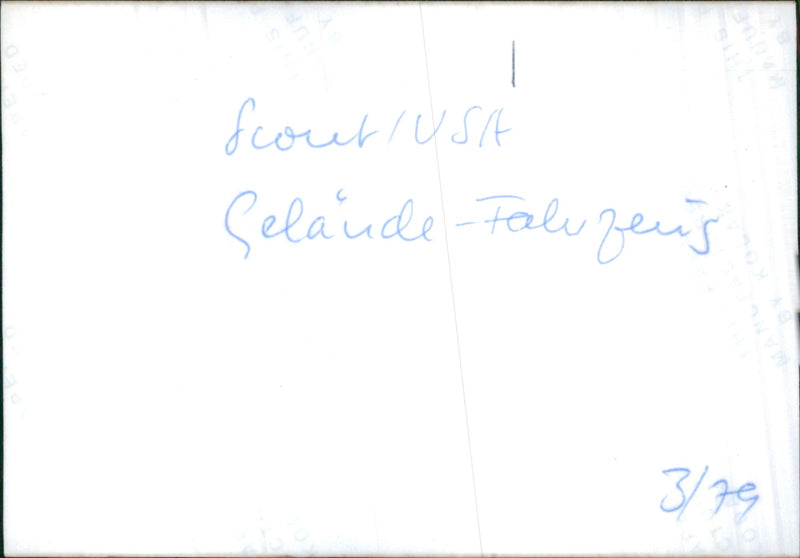 Scout/USA
Gelände-Fahrzeug
3/79